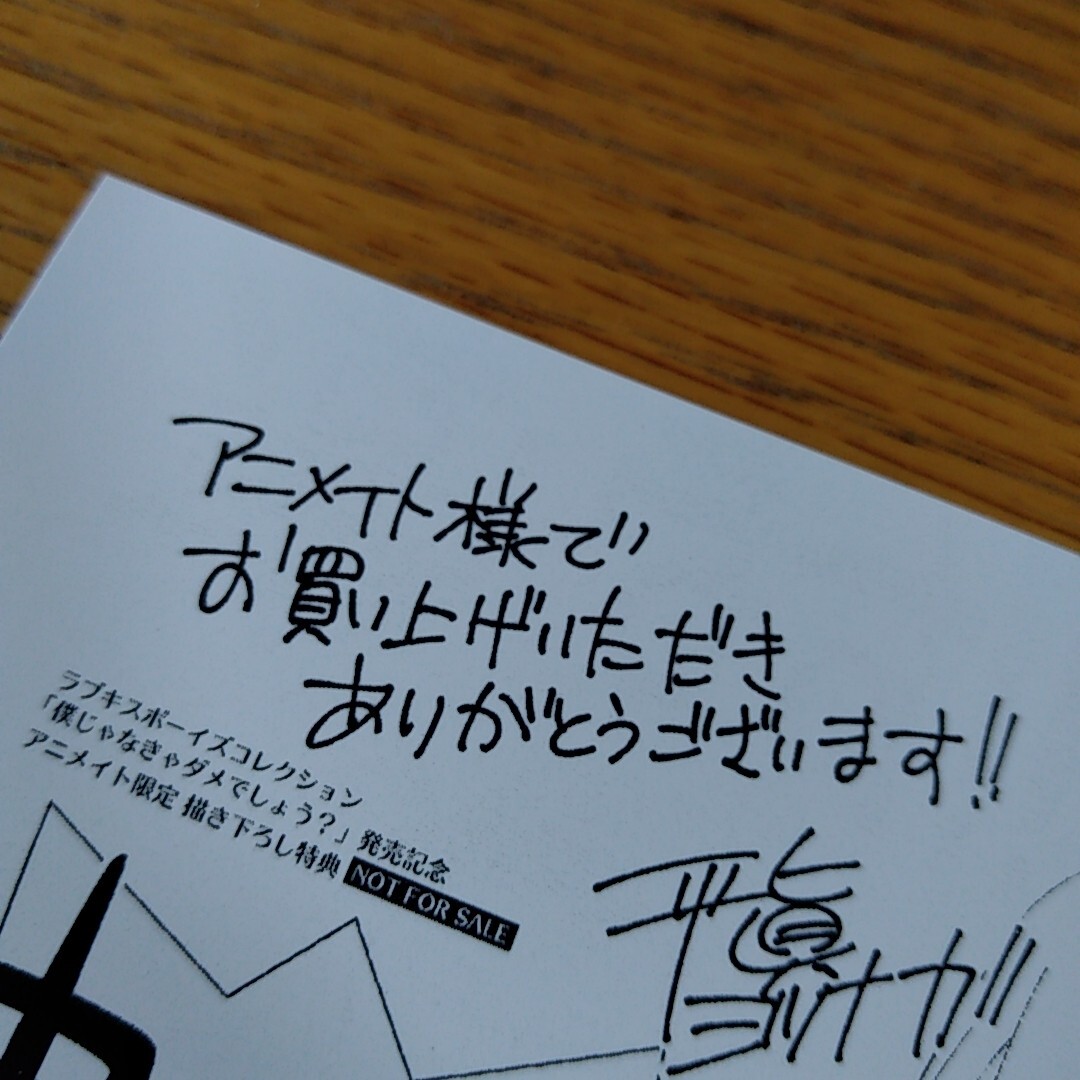 アニメイト様で
お買い上げいただき
ありがとうございます!!
ラブキスボーイズコレクション
「僕じゃなきゃダメでしょう?」発売記念
アニメイト限定 描き下ろし特典 NOT FOR SALE